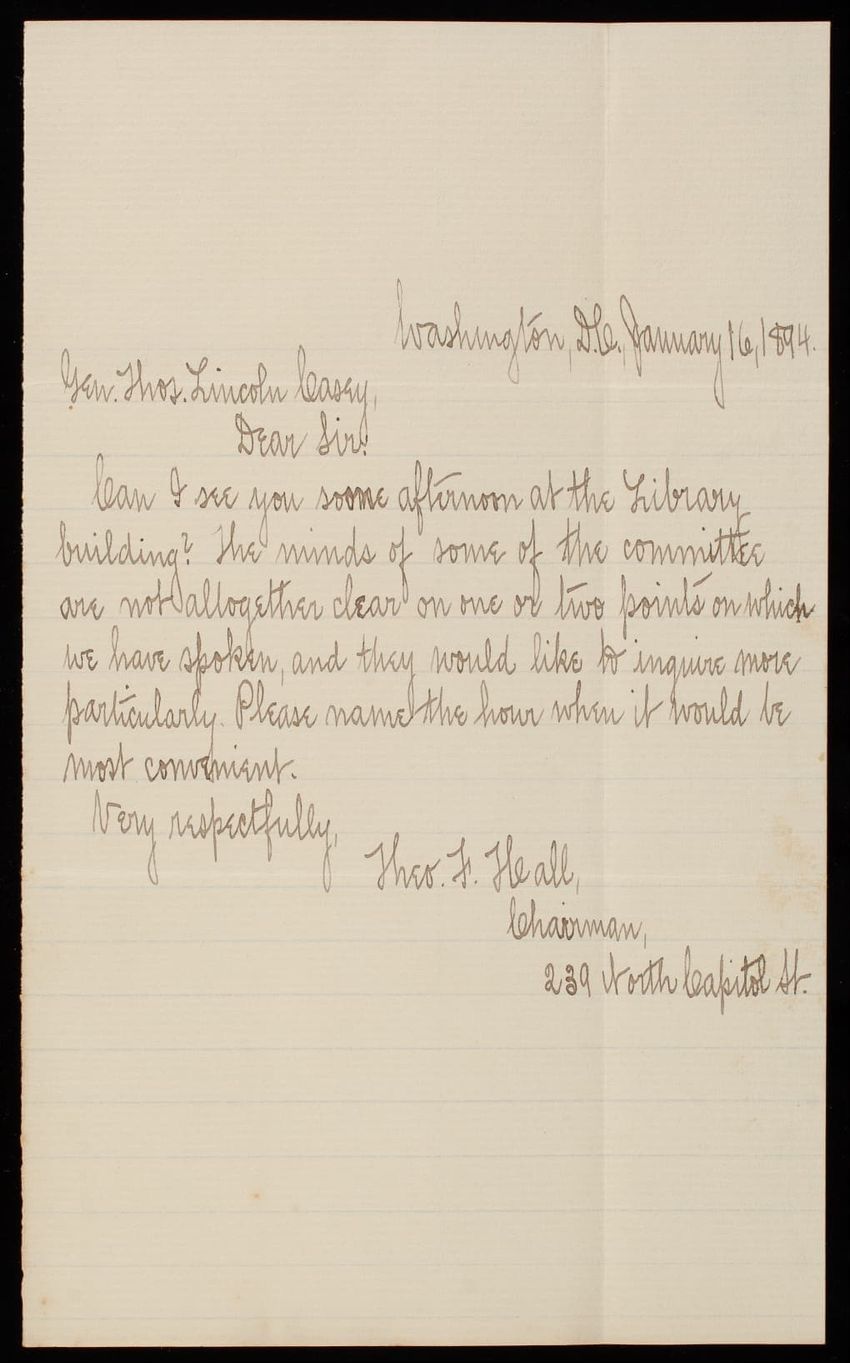 Washington, D.C., January 16, 1894.
Gen. Thos. Lincoln Casey,
Dear Sir:
Can I see you soome afternoon at the Library
building? The minds of some of the committee
are not altogether clear on one or two points on which
we have spoken, and they would like to inquire more
particularly. Please name the hour when it would be
most convenient.
Very respectfully,
Theo. F. Hall,
Chairman,
239 North Capitol St.